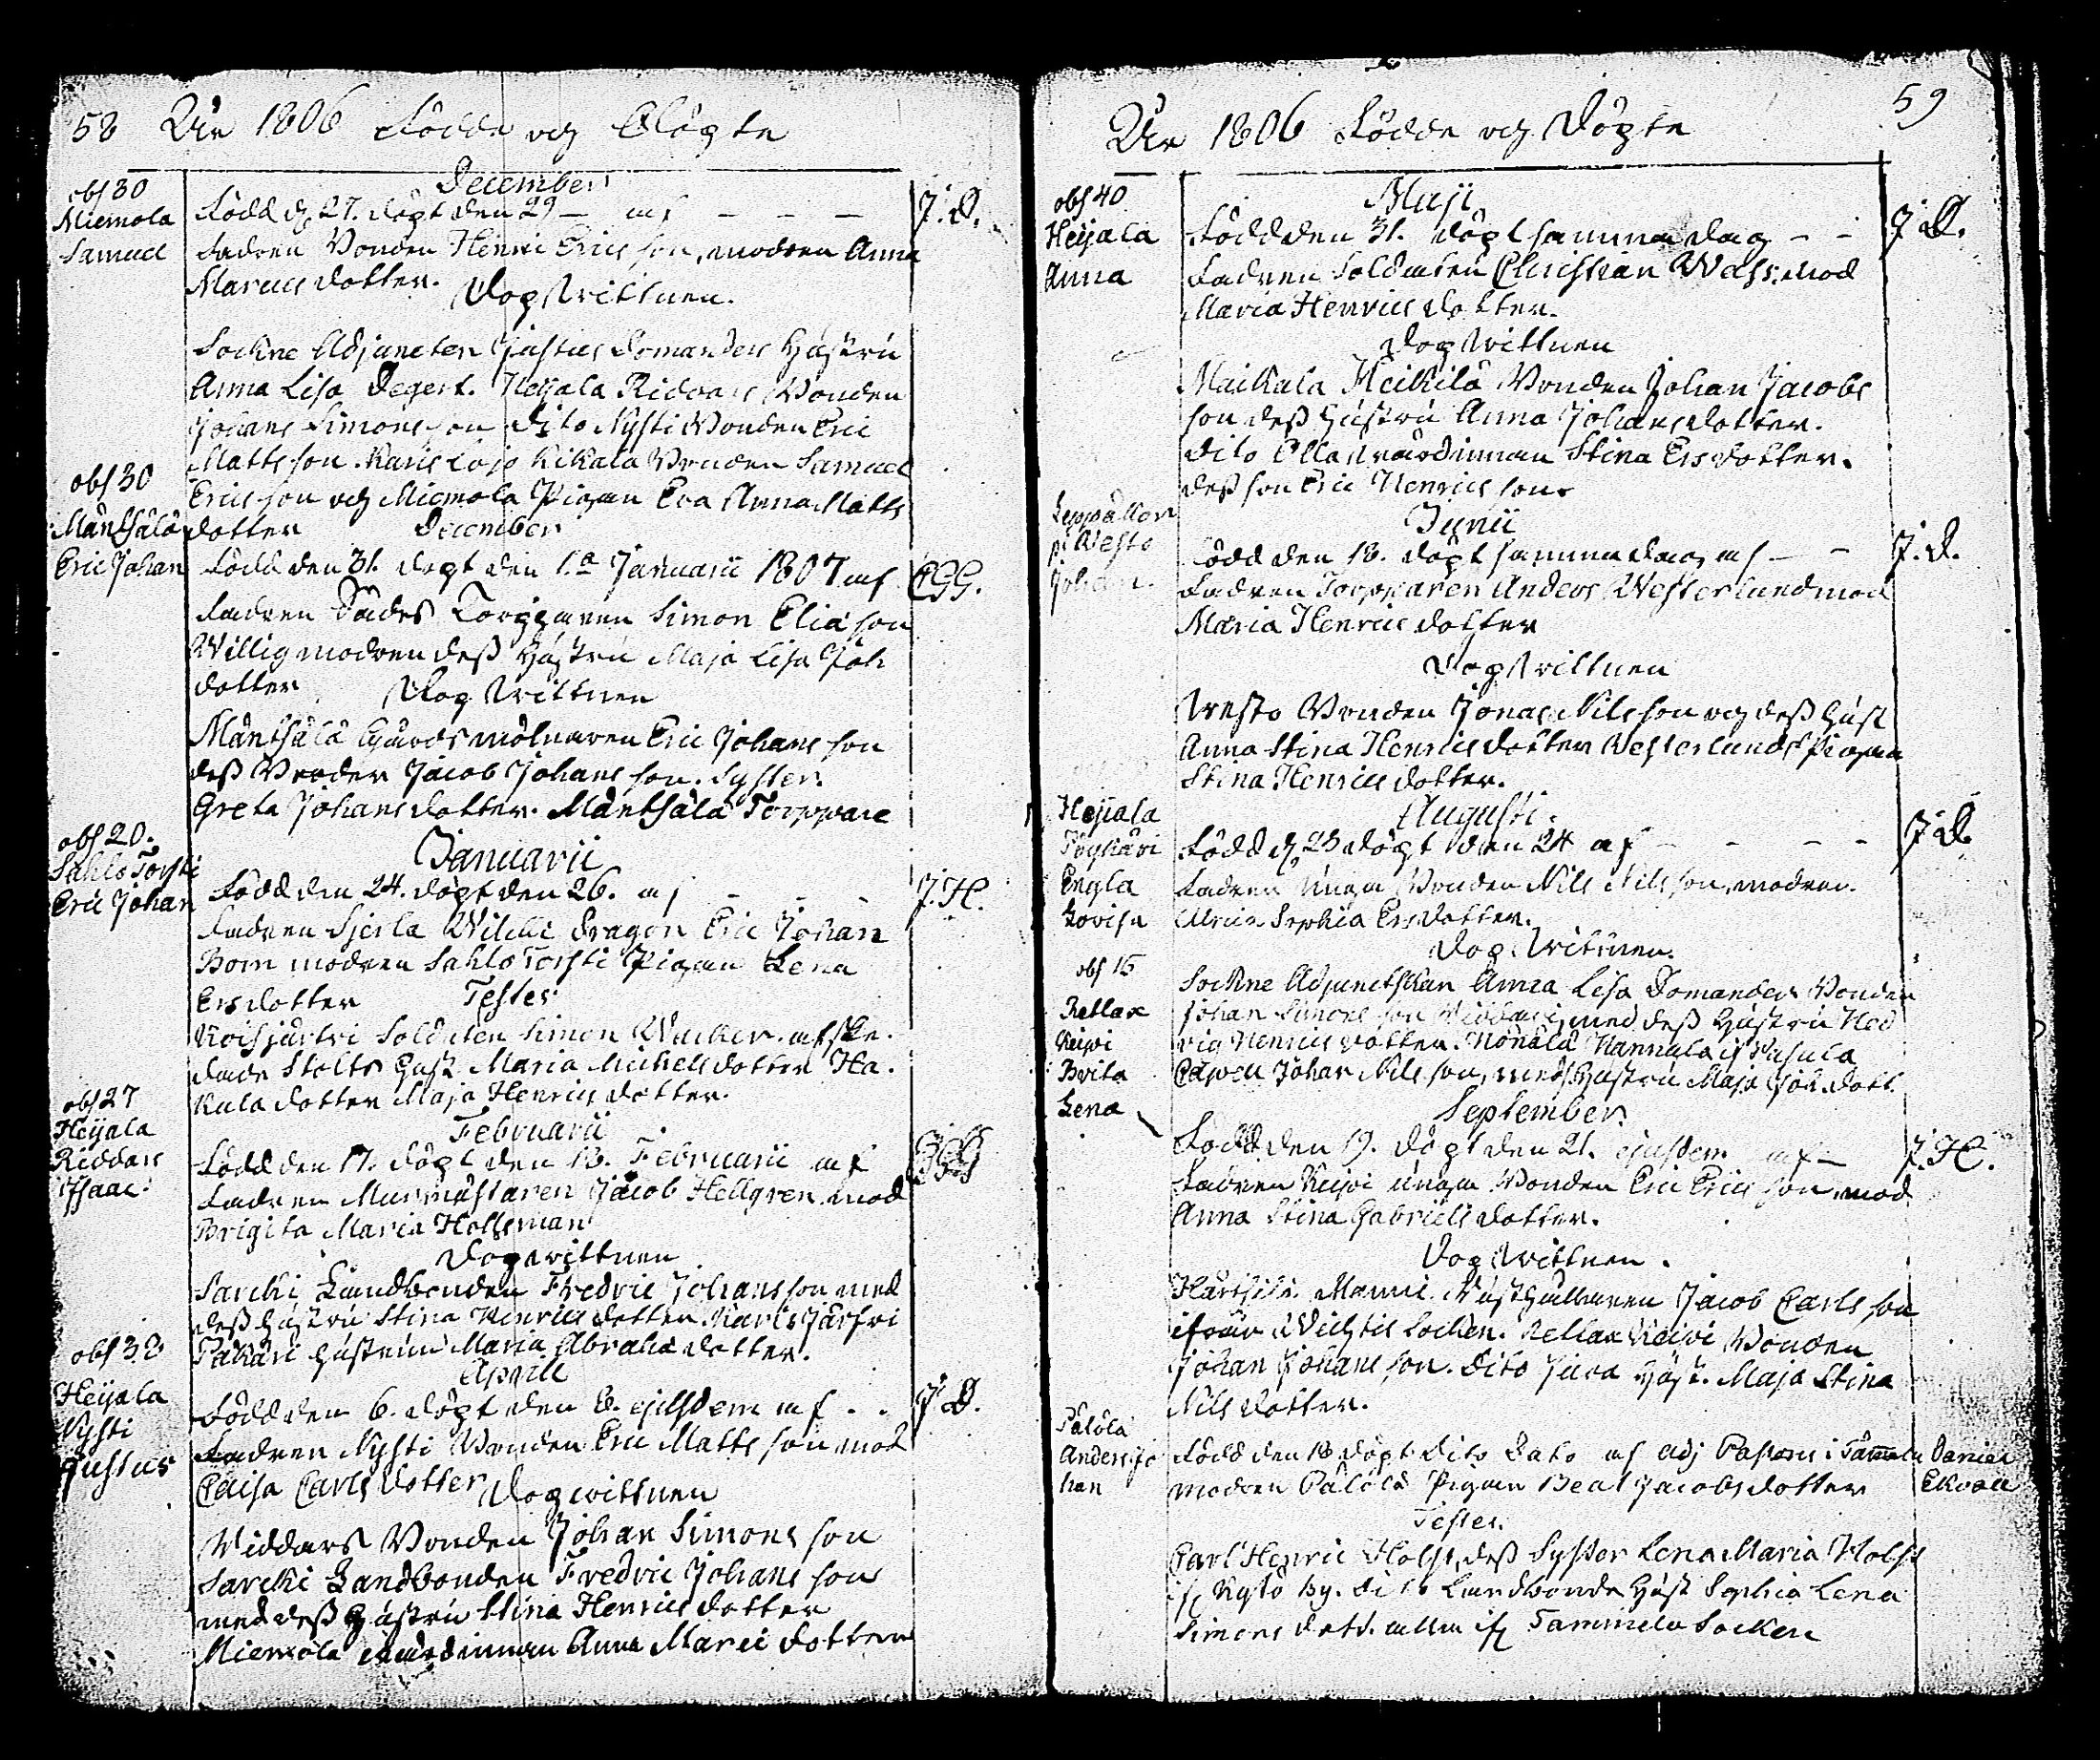 58 År 1806 Födde och Döpte
December
obs 30
Miemola
Samuel
Född d. 27. döpt den 29 – af – – – J. D.
Fadren Bonden Henric Ericsson, modren Anna
Marcus dotter.
Dop Wittnen.
Sockne Adjuncten Justus Domanders hustru
Anna Lisa Degert. Heijala Riddars Bonden
Johans Simonsson Dito Nysti Bonden Eric
Mattsson. Karislojo Kikala Bonden Samuel
Ericsson och Miemola Pigan Eva Anna Matts
dotter
obs 30
Mäntsälä
Eric Johan
December
Född den 31. döpt den 1.a Januarii 1807 af
Fadren Torpparen Simon Elia son
Willig modren dess Hustru Maja Lisa Joh
dotter
Dop Wittnen
Mäntsälä Gårds mölnaren Eric Johans son
dess Broder Jacob Johans son. Syster
Greta Johansdotter. Mäntsälä Torppare
obs 20.
Sahlo Torsti
Eric Johan
Januarii
Född den 24. döpt den 26. af – – – J. H.
Fadren Sjerla Dragon Eric Johan
Born modren Sahlo Torsti Pigan Lena
Ersdotter
Testes
Soldaten Simon Wacker. afske-
dade Stolts Hust. Maria Michelsdotter Ha-
kala dotter Maja Henricsdotter.
obs 27
Heijala
Riddars
Isaac
Februarii
Född den 17. döpt den 18. Februarii af
Fadren Murmästaren Jacob Hellgren mod
Brigita Maria Holtsman
Dopwittnen
Sarcki Landbonden Fredric Johansson med
dess Hustru Stina Henricsdotter Karis Järfwi
Hustrun Maria Abrahasdotter.
obs 38
Heijala
Nysti
Justus
Aprill
Född den 6. döpt den 8. ejusdem af . . J. D.
Fadren Nysti Bonden Eric Mattsson, mod
Caisa Carlsdotter
Dopwittnen
Riddars Bonden Johan Simons son
Sarcki Landbonden Fredric Johans son
med dess Hustru Stina Henricsdotter
Miemola wärdinnan Anna Marci dotter
År 1806 Födde och Döpte 59
obs 40
Heijala
Anna
Maji
Född den 31. döpt samma dag – – J. D.
Fadren Soldaten Christian Wass. Mod
Maria Henricsdotter.
Dop Wittnen
Maikala Heikilä Bonden Johan Jacobs
son dess Hustru Anna Johansdotter.
Dito Olla wärdinnan Stina Ersdotter.
dess son Eric Henricsson.
Westo
Johan.
Junii
Född den 18. döpt samma dag af – – J. D.
Fadren Torpparen Anders Westerlund mod
Maria Henrics dotter
Dop Wittnen
Westo Bonden Jonas Nilsson och dess Hust
Anna Stina Henricsdotter Westerlunds Pigan
Stina Henricsdotter.
Heijala
Engla
Lovisa
Augusti.
Född d. 23 döpt den 24 af – – – – J. D.
Fadren Unga Bonden Nils Nilsson, modren
Ulrica Sophia Ersdotter.
Dop Wittnen.
Sockne Adjunctskan Anna Lisa Domander Bonden
Johan Simons son Riddars, med dess Hustru Hed
vig Henricsdotter. Nonala Hannula if Pusula
Johan Nils son, med Hustru Maja Joh. dott.
obs 15
Retlax
Keiwi
Brita
Lena
September
Född den 19. döpt den 21. ejusdem af – J. H.
Fadren Keiwi unga Bonden Eric Ericsson, mod
Anna Stina Gabrielsdotter.
Dop Wittnen.
Manni Jacob Carls son
ifrån Wichtis Socken. Retlax Keiwi Bonden
Johan Johans son. Dito Juva Hust. Maja Stina
Nils dotter.
Palola
Anders Jo
han
Född den 18 döpt dito dato af Adj Pastoris i Tammela Daniel
modren Palola Pigan Beat Jacobsdotter Ekvall
Testes.
Carl Henric Holst, dess Syster Lena Maria Holst
if. By. Dito Landbonde Hust Sophia Lena
Simons dott. alla if. Tammela Socken